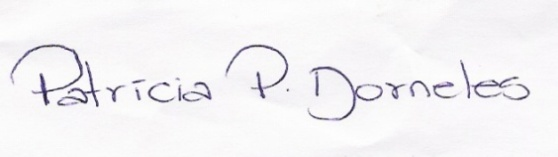 Patrícia P. Dorneles